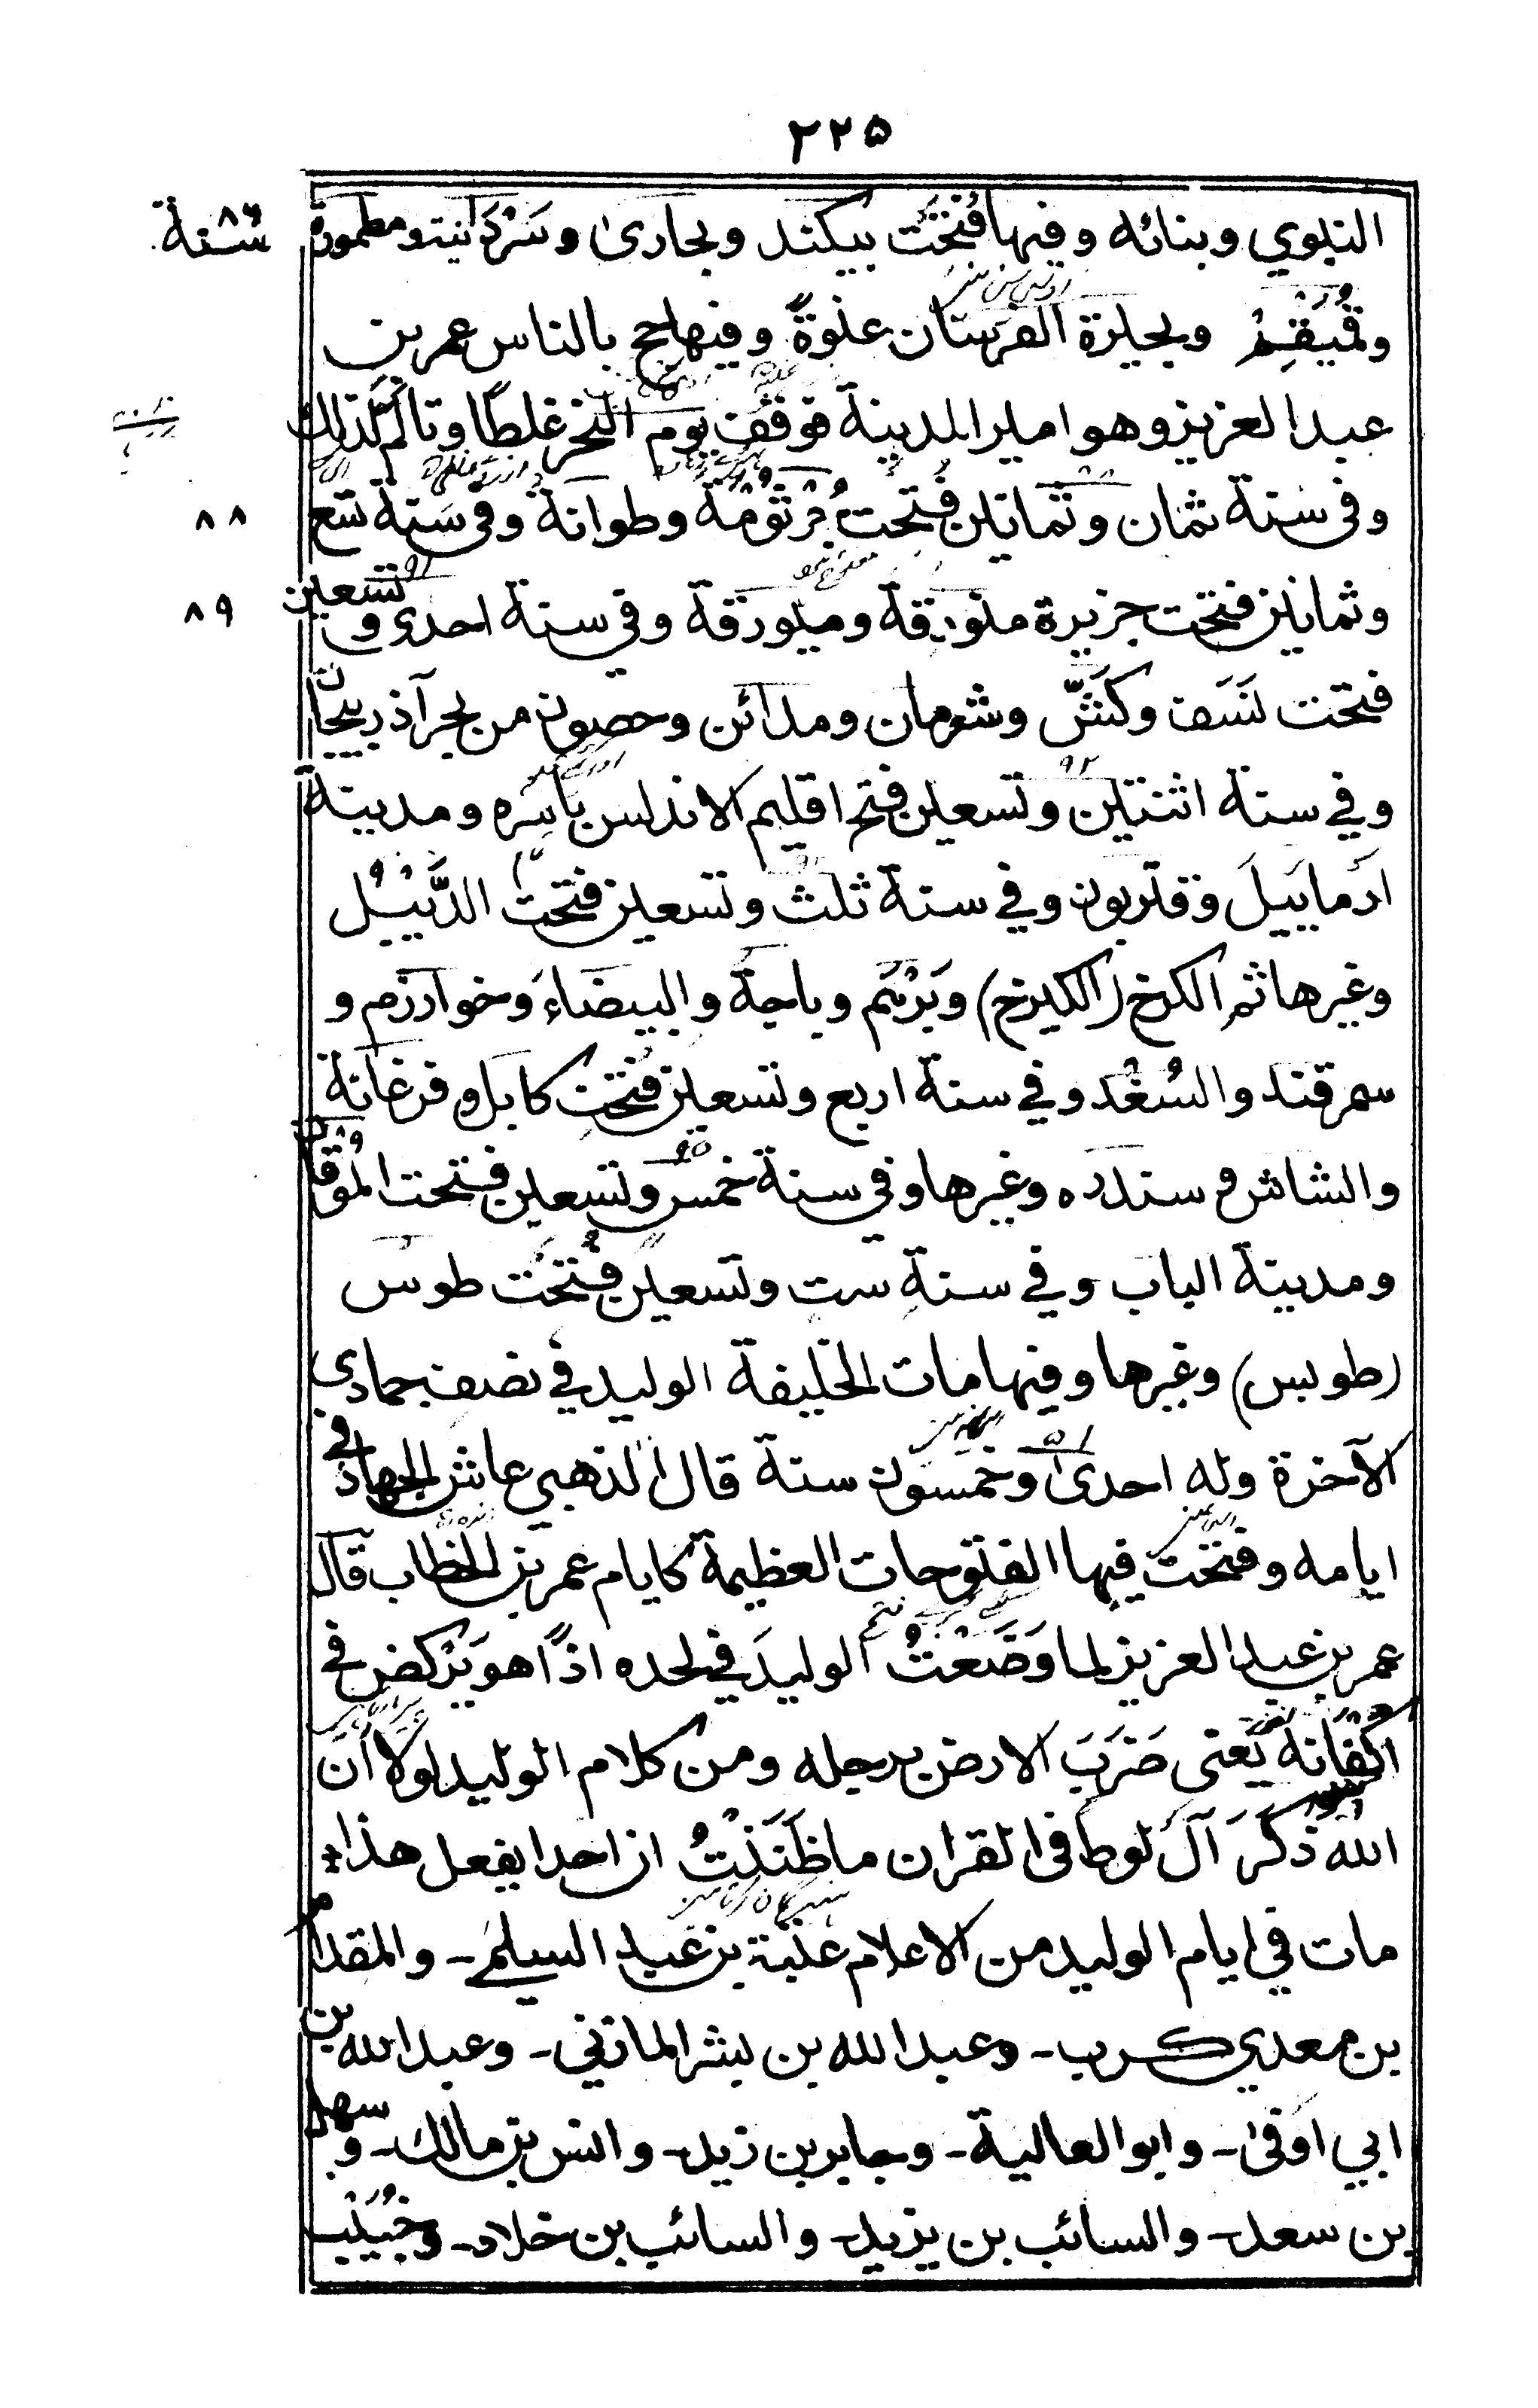 ۲۲۵
النبوي وبنائه وفيها فُتِحَت بيكند وبخارى وسَرْدَانية ومطمورة
سنة ۸۶
وقُمَيْقِم وبحيرة الفرسان عنوةً وفيها حج بالناس عمر بن
عبد العزيز وهو امير المدينة فوقف يوم النحر غلطًا وتألَّم لذلك
وفي سنة ثمان وثمانين فُتحت جُرثُومَة وطوانة وفي سنة تسع
۸۸
وثمانين فتحت جزيرة منورقة وميورقة وفي سنة احدى وتسعين
۸۹
فتحت نَسَف وكَشّ وشومان ومدائن وحصون من بحر آذربيجان
وفي سنة اثنتين وتسعين فتح اقليم الاندلس باسره ومدينة
ارمابيل وقتربون وفي سنة ثلث وتسعين فتحت الدَّيْبُل
وغيرها ثم الكرخ (الكيرخ) وبَرْهَم وباجة والبيضاءَ وخوارزم و
سمرقند والسُغْد وفي سنة اربع وتسعين فُتحت كابل وفرغانة
والشاش و سندره وغيرها وفي سنة خمس وتسعين فتحت المُوقان
ومدينة الباب وفي سنةِ ستٍ وتسعين فُتِحَت طوس
(طوبس) وغيرها وفيها مات الخليفة الوليد في نصف جمادي
الآخرة وله احدىٰ وخمسون سنة قال الذهبي عاش الجهاد في
ايامه وفتحت فيها الفتوحات العظيمة كايام عمر بن الخطاب قال
عمر بن عبد العزيز لما وَضَعْتُ الوليدَ في لحده اذًا هو يَرْكض في
اكفانه يعني ضَرَبَ الارض برجله ومن كلام الوليد لولا أنَّ
الله ذكَرَ آلَ لوط في القران ما ظَنَنْتُ ان احدا يفعل هذا+
مات في ايام الوليد من الاعلام عتبة بن عبد السلمي - والمقدام
بن معدي كرب - وعبد الله بن بشر المازني - وعبد الله بن
ابي اوفىٰ - وابو العالية - وجابر بن زيد - وانس بن مالك - و سهل
بن سعد - والسائب بن يزيد - والسائب بن خلاد - وخُبَيْب